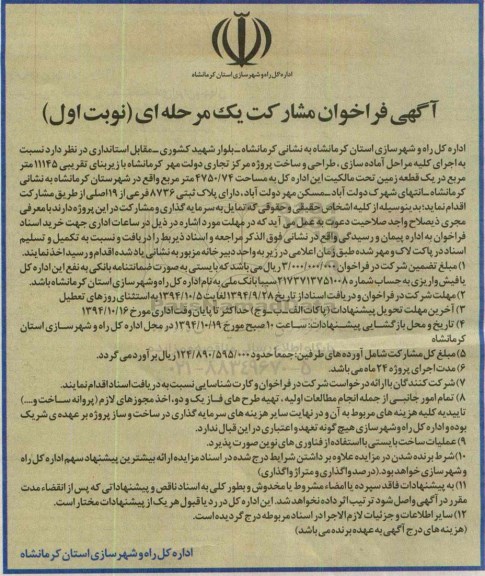 اداره کل راه و شهرسازی استان کرمانشاه
آگهی فراخوان مشارکت یک مرحله ای (نوبت اول)
اداره کل راه و شهرسازی استان کرمانشاه به نشانی کرمانشاه ـ بلوار شهید کشوری ـ مقابل استانداری در نظر دارد نسبت
به اجرای کلیه مراحل آماده سازی ، طراحی و ساخت پروژه مرکز تجاری دولت مهر کرمانشاه با زیربنای تقریبی ۱۱۱۴۵ متر
مربع در یک قطعه زمین تحت مالکیت این اداره کل به مساحت ۴۷۵۰/۷۴ متر مربع واقع در شهرستان کرمانشاه به نشانی
کرمانشاه ـ انتهای شهرک دولت آباد ـ مسکن مهر دولت آباد، دارای پلاک ثبتی ۸۷۳۶ فرعی از ۱۹ اصلی از طریق مشارکت
اقدام نماید: بدینوسیله از کلیه اشخاص حقیقی و حقوقی که تمایل به سرمایه گذاری و مشارکت در این پروژه دارند با معرفی
مجری ذیصلاح واجد صلاحیت دعوت به عمل می آید که در مهلت مورد اشاره در ذیل در ساعات اداری جهت خرید اسناد
فراخوان به اداره پیمان و رسیدگی واقع در نشانی فوق الذکر مراجعه و اسناد ذیربط را دریافت و نسبت به تکمیل و تسلیم
اسناد در پاکت لاک و مهر شده طبق زمان اعلامی در زیر به واحد دبیرخانه مزبور به نشانی یاد شده اقدام و رسید اخذ نمایند.
۱) مبلغ تضمین شرکت در فراخوان ۳/۰۰۰/۰۰۰/۰۰۰ ریال می باشد که بایستی به صورت ضمانتنامه بانکی به نفع این اداره کل
یا فیش واریزی به حساب شماره ۲۱۷۳۷۱۳۷۵۱۰۰۸ سیبا بانک ملی به نام اداره کل راه و شهرسازی استان کرمانشاه باشد.
۲) مهلت شرکت در فراخوان و دریافت اسناد از تاریخ ۱۳۹۴/۹/۲۸ لغایت ۱۳۹۴/۱۰/۵ به استثنای روزهای تعطیل
۳) آخرین مهلت تحویل پیشنهادات (پاکات الف ـ ب ـ ج) حداکثر تا پایان وقت اداری مورخ ۱۳۹۴/۱۰/۱۶
۴) تاریخ و محل بازگشایی پیشنهادات: ساعت ۱۰ صبح مورخ ۱۳۹۴/۱۰/۱۹ در محل اداره کل راه و شهرسازی استان
کرمانشاه
۵) مبلغ کل مشارکت شامل آورده های طرفین: جمعاً حدود ۱۲۴/۸۹۰/۵۹۵/۰۰۰ ریال برآورد می گردد.
۶) مدت اجرای پروژه ۲۴ ماه می باشد.
۷) شرکت کنندگان با ارائه درخواست شرکت در فراخوان و کارت شناسایی نسبت به دریافت اسناد اقدام نمایند.
۸) تمام امور جانبی از جمله انجام مطالعات اولیه ، تهیه طرح های فاز یک و دو، اخذ مجوزهای لازم (پروانه ساخت و...) تا
تاییدیه کلیه هزینه های مربوط به آن و در نهایت سایر هزینه های سرمایه گذاری در ساخت و ساز پروژه بر عهده ی شریک
بوده و اداره کل راه و شهرسازی هیچ گونه تعهد و اعتباری در این قبال ندارد.
۹) عملیات ساخت بایستی با استفاده از فناوری های نوین صورت پذیرد.
۱۰) شرط برنده شدن در مزایده علاوه بر داشتن شرایط درج شده در اسناد مزایده ارائه بیشترین پیشنهاد سهم اداره کل راه
و شهرسازی خواهد بود. (درصد واگذاری و متراژ واگذاری)
۱۱) به پیشنهادات فاقد سپرده یا امضاء مشروط یا مخدوش و بطور کلی به اسناد ناقص و پیشنهاداتی که پس از انقضاء مدت
مقرر در آگهی واصل شود ترتیب اثر داده نخواهد شد. این اداره کل در رد یا قبول هر یک از پیشنهادات مختار است.
۱۲) سایر اطلاعات و جزئیات لازم الاجرا در اسناد مربوطه درج گردیده است.
(هزینه های درج آگهی به عهده برنده می باشد)
اداره کل راه و شهرسازی استان کرمانشاه